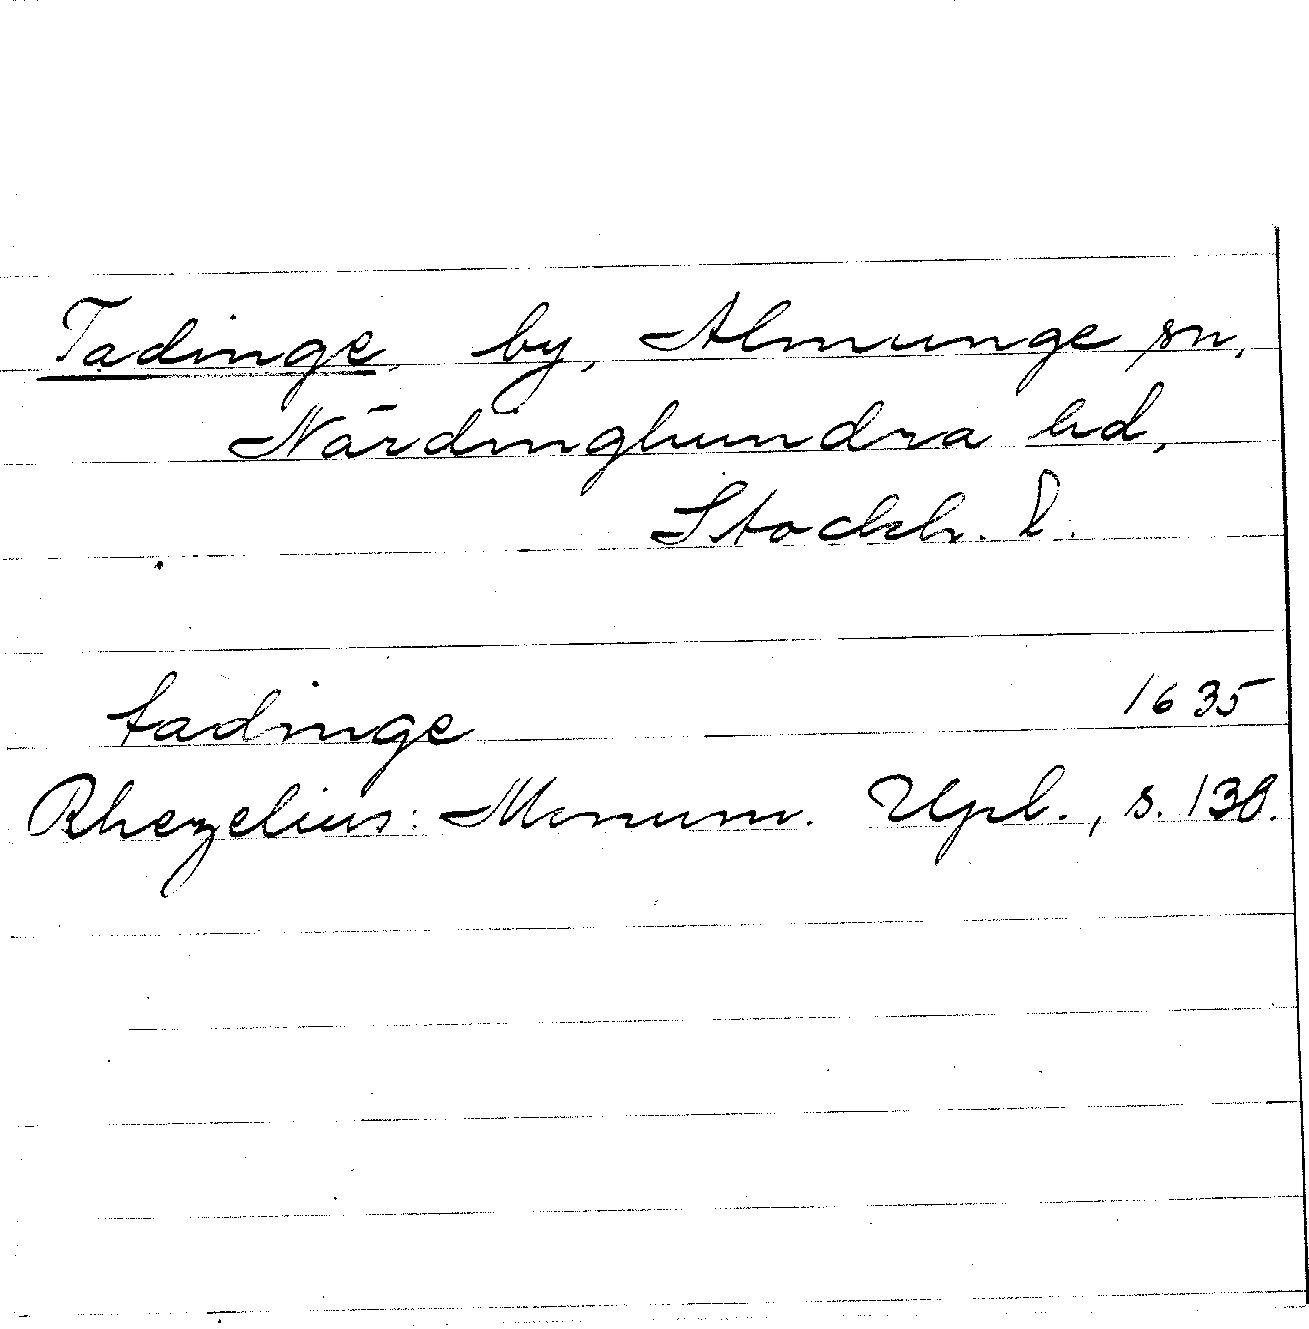 Tadinge, by, Almunge sn,
Närdinghundra hd,
Stockh. l.
tadinge 1635
Rhezelius: Monum. Upl., s. 138.